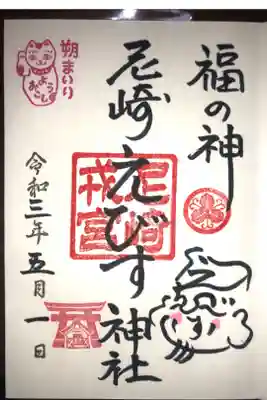 福の神
尼崎えびす神社
尼崎戎宮
朔まいり
ようおこし
令和三年五月一日